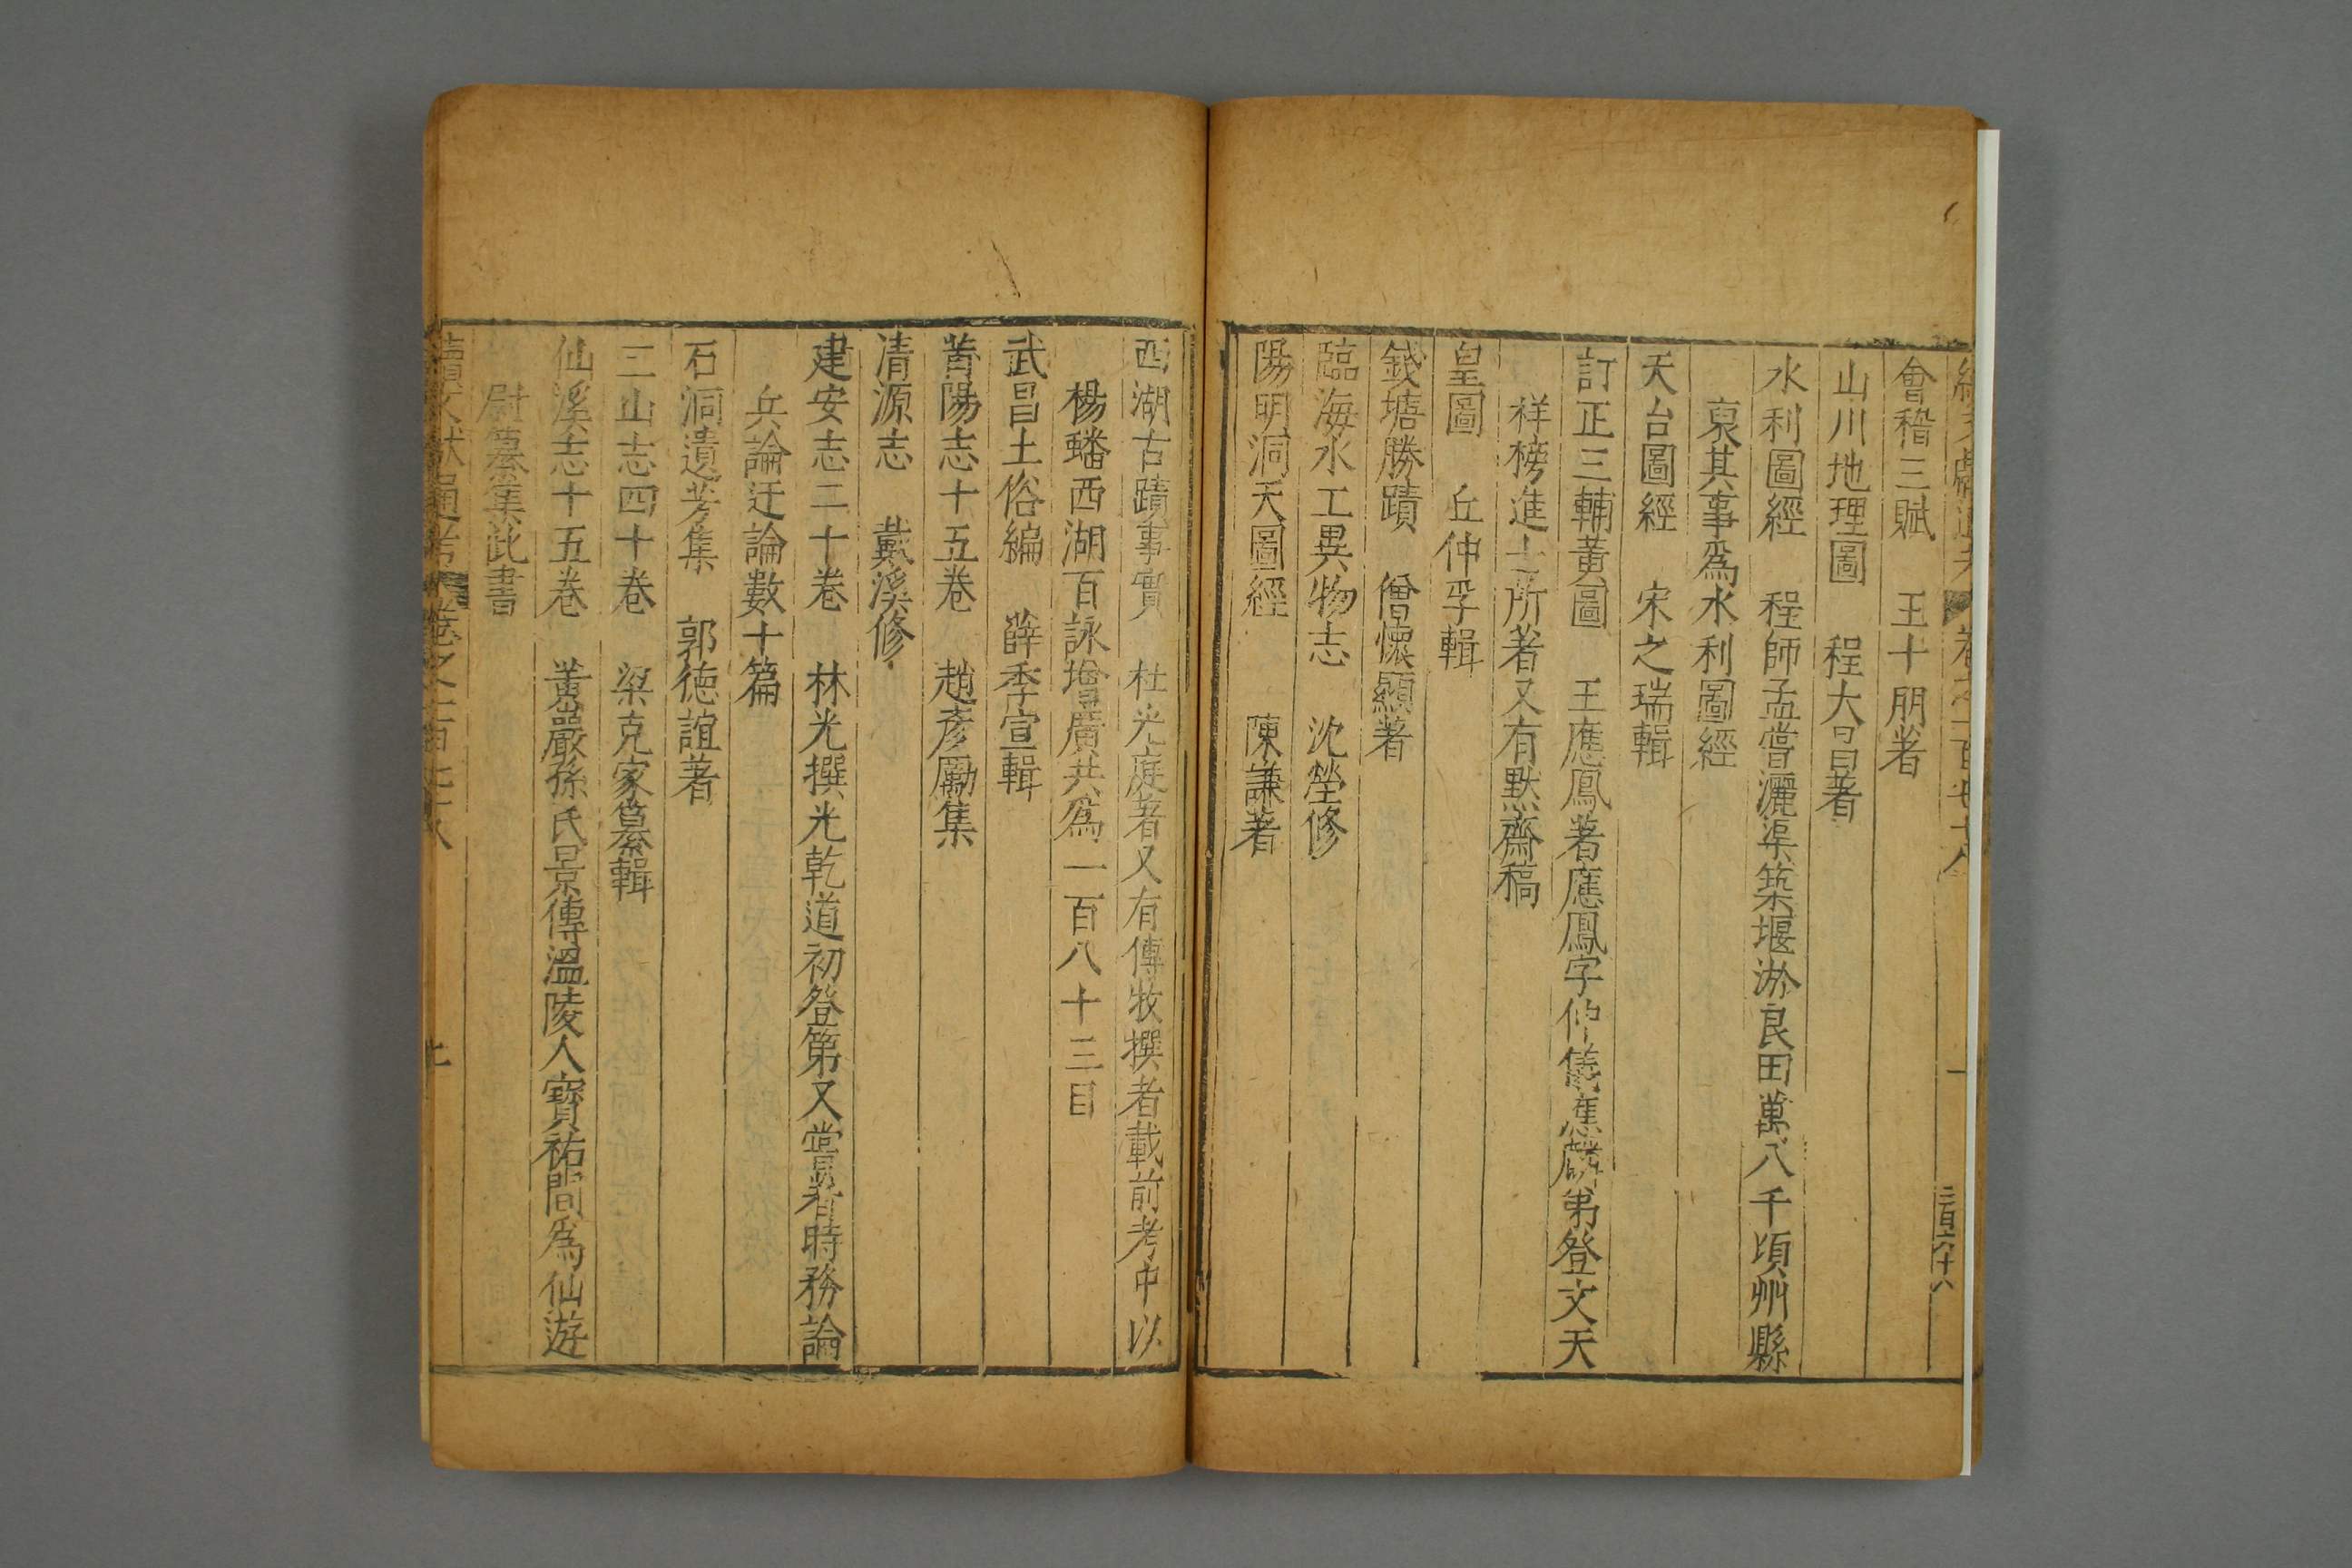 會稽三賦　王十朋著
山川地理圖　程大昌著
水利圖經　程師孟嘗灑渠築堰淤良田萬八千頃州縣
裒其事爲水利圖經
天台圖經　宋之瑞輯
訂正三輔黃圖　王應鳳著應鳳字仲儀應麟弟登文天
祥榜進士所著又有默齋稿
皇圖　丘仲孚輯
錢塘勝蹟　僧懷顯著
臨海水工異物志　沈瑩修
陽明洞天圖經　陳謙著
西湖古蹟事實　杜光庭著又有傅牧撰者載前考中以
楊蟠西湖百詠增廣共爲一百八十三目
武昌土俗編　薛季宣輯
莆陽志十五卷　趙彥勵集
清源志　戴溪修
建安志二十卷　林光撰光乾道初登第又嘗着時務論
兵論迂論數十篇
石洞遺芳集　郭德誼著
三山志四十卷　梁克家纂輯
仙溪志十五卷　黃巖孫氏景傳溫陵人寶祐間爲仙遊
尉纂集此書
續文獻通考　卷之一百七十八